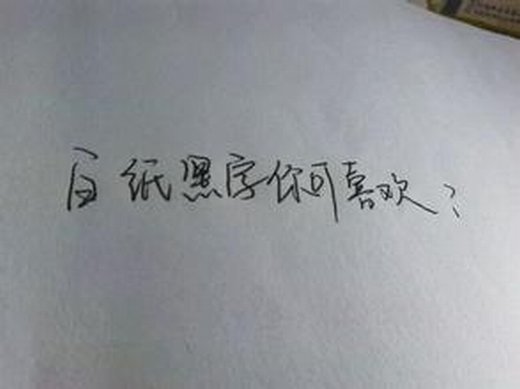 白纸黑字你可喜欢？